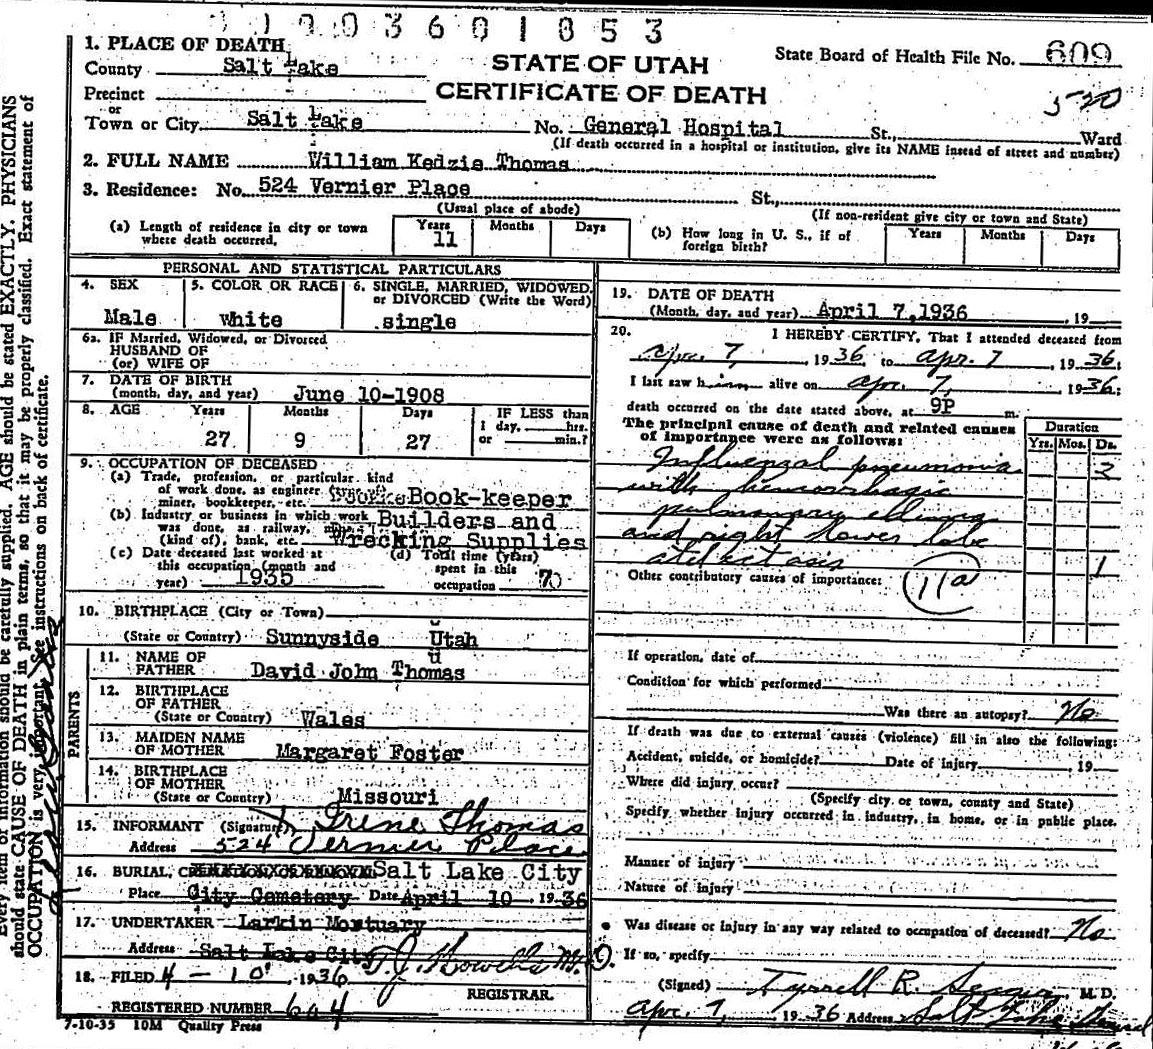 1003601853
1. PLACE OF DEATH
STATE OF UTAH
State Board of Health File No. 609
County Salt Lake
CERTIFICATE OF DEATH
Precinct
520
or
Town or City Salt Lake No. General Hospital St., Ward
(If death occurred in a hospital or institution, give its NAME insead of street and number)
2. FULL NAME William Kedzie Thomas
3. Residence: No. 524 Vernier Place St.,
(Usual place of abode) (If non-resident give city or town and State)
(a) Length of residence in city or town where death occurred. Years 11 Months Days
(b) How long in U. S., if of foreign birth? Years Months Days
PERSONAL AND STATISTICAL PARTICULARS
4. SEX Male
5. COLOR OR RACE White
6. SINGLE, MARRIED, WIDOWED, or DIVORCED (Write the Word) single
6a. IF Married, Widowed, or Divorced
HUSBAND OF
(or) WIFE OF
7. DATE OF BIRTH
(month, day, and year) June 10-1908
8. AGE Years Months Days IF LESS than
27 9 27 1 day, hrs.
or min.?
9. OCCUPATION OF DECEASED
(a) Trade, profession, or particular kind
of work done, as engineer
miner, bookkeeper, etc. Book-keeper
(b) Industry or business in which work
was done, as railway,
(kind of), bank, etc. Builders and
Wrecking Supplies
(c) Date deceased last worked at
this occupation (month and
year) 1935
(d) Total time (years)
spent in this
occupation 7
10. BIRTHPLACE (City or Town)
(State or Country) Sunnyside Utah
PARENTS
11. NAME OF
FATHER David John Thomas
12. BIRTHPLACE
OF FATHER
(State or Country) Wales
13. MAIDEN NAME
OF MOTHER Margaret Foster
14. BIRTHPLACE
OF MOTHER
(State or Country) Missouri
15. INFORMANT (Signature) Irene Thomas
Address 524 Vernier Place
16. BURIAL, Salt Lake City
Place City Cemetery Date April 10, 1936
17. UNDERTAKER Larkin Mortuary
Address Salt Lake City
18. FILED 4-10, 1936 T.J. Howells M.D.
REGISTRAR.
REGISTERED NUMBER 604
7-10-35 10M Quality Press
19. DATE OF DEATH
(Month, day, and year) April 7,1936, 19
20. I HEREBY CERTIFY, That I attended deceased from
Apr. 7, 1936, to Apr. 7, 1936;
I last saw him alive on Apr. 7, 1936;
death occurred on the date stated above, at 9P m.
The principal cause of death and related causes
of importance were as follows:
Duration
Yrs. Mos. Ds.
Influenzal pneumonia 3
with hemorrhagic
pulmonary
and right lower lobe
atelectasis 1
Other contributory causes of importance: 11a
If operation, date of
Condition for which performed
Was there an autopsy? No
If death was due to external causes (violence) fill in also the following:
Accident, suicide, or homicide? Date of injury, 19
Where did injury occur?
(Specify city or town, county and State)
Specify whether injury occurred in industry, in home, or in public place.
Manner of injury
Nature of injury
Was disease or injury in any way related to occupation of deceased? No
If so, specify
(Signed) Tyrrell R. M. D.
Apr. 7, 1936 Address Salt Lake
Every item of information should be carefully supplied. AGE should be stated EXACTLY. PHYSICIANS
should state CAUSE OF DEATH in plain terms, so that it may be properly classified. Exact statement of
OCCUPATION is very important. See instructions on back of certificate.